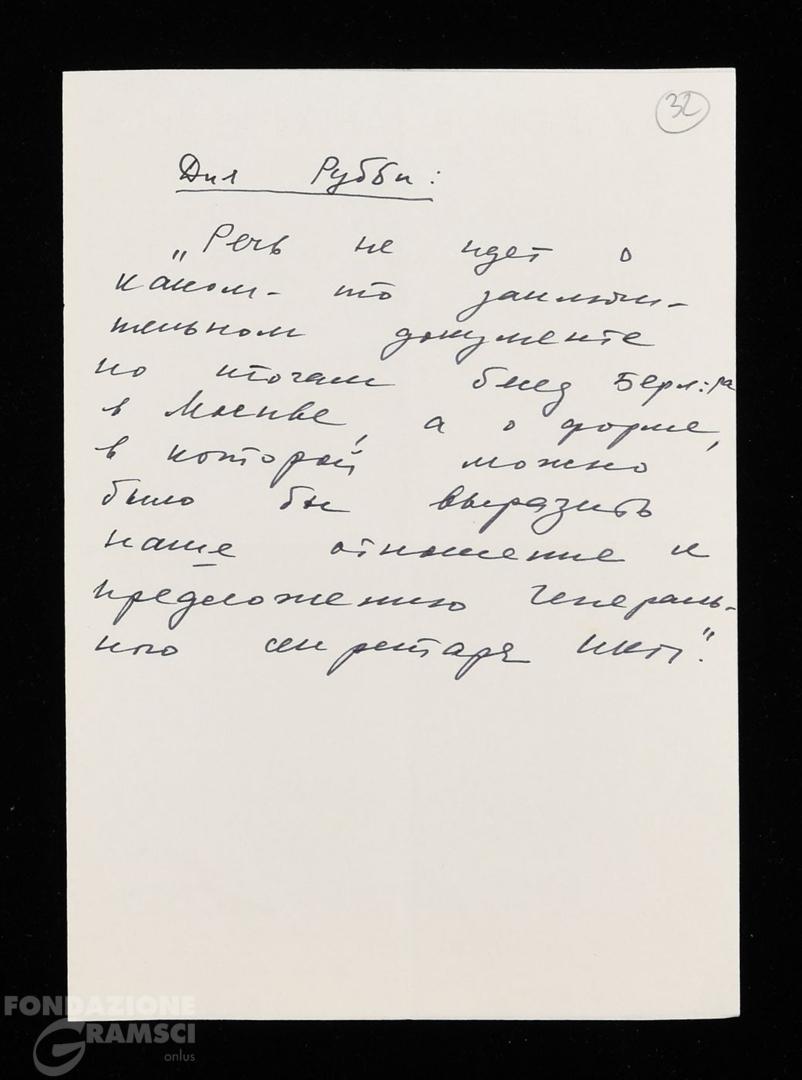 32
Для Рубби:
„Речь не идет о
каком-то заключи-
тельном документе
по итогам бесед Берл:ра
в Москве, а о форме,
в которой можно
было бы выразить
наше отношение к
предложению Генераль-
ного секретаря ИКП".
FONDAZIONE
GRAMSCI
onlus